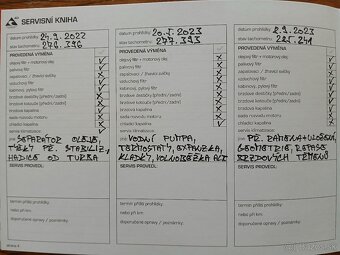 SERVISNÍ KNIHA
datum prohlídky 24.9.2022
stav tachometru 276.396
PROVEDENÁ VÝMĚNA
olejový filtr + motorový olej
palivový filtr
zapalovací / žhavící svíčky
vzduchový filtr
kabinový, pylový filtr
brzdové destičky (přední/zadní)
brzdové kotouče (přední/zadní)
brzdová kapalina
sada rozvodu motoru
chladící kapalina
servis klimatizace
jiné SEPARATOR OLEJE,
TYČKY PŘ. STABILIZ,
HADICE OD TURBA
SERVIS PROVEDL:
termín příští prohlídky:
nebo při km:
doporučené opravy / poznámky:
strana 4
datum prohlídky 20.5.2023
stav tachometru 277.393
PROVEDENÁ VÝMĚNA
olejový filtr + motorový olej
palivový filtr
zapalovací / žhavící svíčky
vzduchový filtr
kabinový, pylový filtr
brzdové destičky (přední/zadní)
brzdové kotouče (přední/zadní)
brzdová kapalina
sada rozvodu motoru
chladící kapalina
servis klimatizace
jiné VODNÍ PUMPA,
TERMOSTATY,
KLADKY, VOLNOBĚŽKA ALT
SERVIS PROVEDL:
termín příští prohlídky:
nebo při km:
doporučené opravy / poznámky:
datum prohlídky 2.9.2023
stav tachometru 285.241
PROVEDENÁ VÝMĚNA
olejový filtr + motorový olej
palivový filtr
zapalovací / žhavící svíčky
vzduchový filtr
kabinový, pylový filtr
brzdové destičky (přední/zadní)
brzdové kotouče (přední/zadní)
brzdová kapalina
sada rozvodu motoru
chladící kapalina
servis klimatizace
jiné PŘ. RAMENA+ULOŽENÍ,
GEOMETRIE, REPASE
BRZDOVÝCH TŘMENŮ
SERVIS PROVEDL:
termín příští prohlídky:
nebo při km:
doporučené opravy / poznámky: